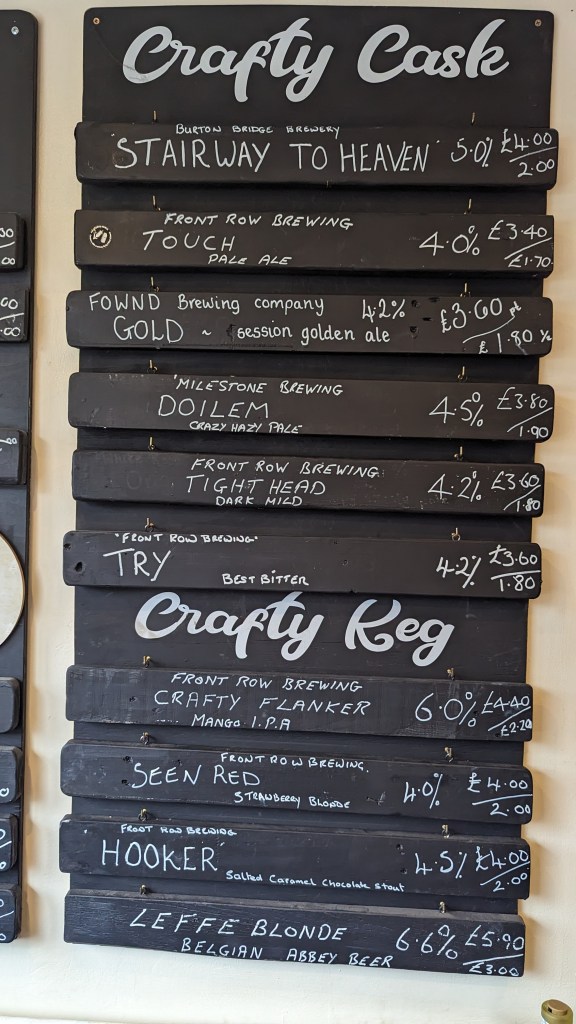 Crafty Cask
BURTON BRIDGE BREWERY
'STAIRWAY TO HEAVEN' 5.0% £4.00
2.00
FRONT ROW BREWING
TOUCH 4.0% £3.40
PALE ALE £1.70
FOWND Brewing company 4.2% £3.60 pt
GOLD ~ session golden ale £1.80 ½
'MILESTONE BREWING
DOILEM 4.5% £3.80
CRAZY HAZY PALE 1.90
FRONT ROW BREWING
TIGHT HEAD 4.2% £3.60
DARK MILD 1.80
"FRONT ROW BREWING"
TRY 4.2% £3.60
BEST BITTER 1.80
Crafty Keg
FRONT ROW BREWING
CRAFTY FLANKER 6.0% £4.40
MANGO I.P.A £2.20
FRONT ROW BREWING.
SEEN RED 4.0% £4.00
STRAWBERRY BLONDE 2.00
FRONT ROW BREWING
HOOKER 4.5% £4.00
Salted Caramel Chocolate Stout 2.00
LEFFE BLONDE 6.6% £5.90
BELGIAN ABBEY BEER £3.00